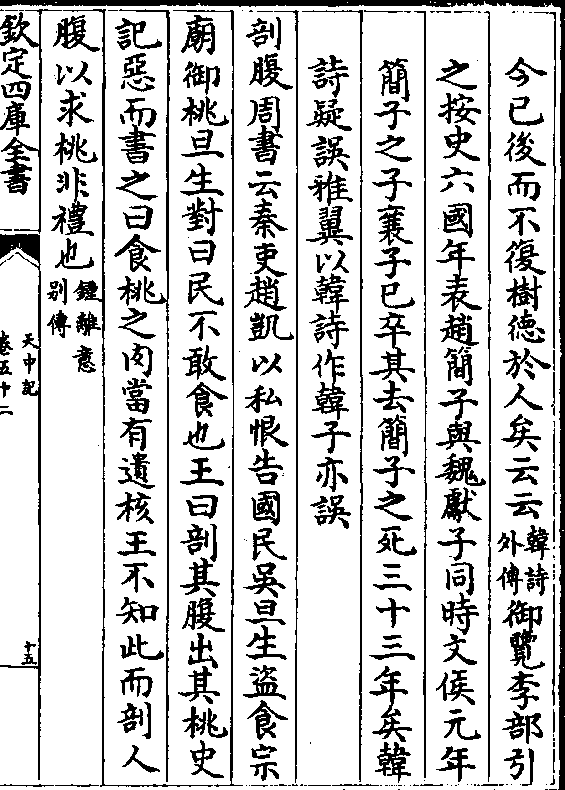 今已後而不復樹德於人矣云云韓詩外傳御覽李部引
之按史六國年表趙簡子與魏獻子同時文侯元年
簡子之子襄子已卒其去簡子之死三十三年矣韓
詩疑誤雅翼以韓詩作韓子亦誤
剖腹周書云秦吏趙凱以私恨告國民吳旦生盜食宗
廟御桃旦生對曰民不敢食也王曰剖其腹出其桃史
記惡而書之曰食桃之肉當有遺核王不知此而剖人
腹以求桃非禮也鍾離意别傳
欽定四庫全書
天中記
卷五十二
十五